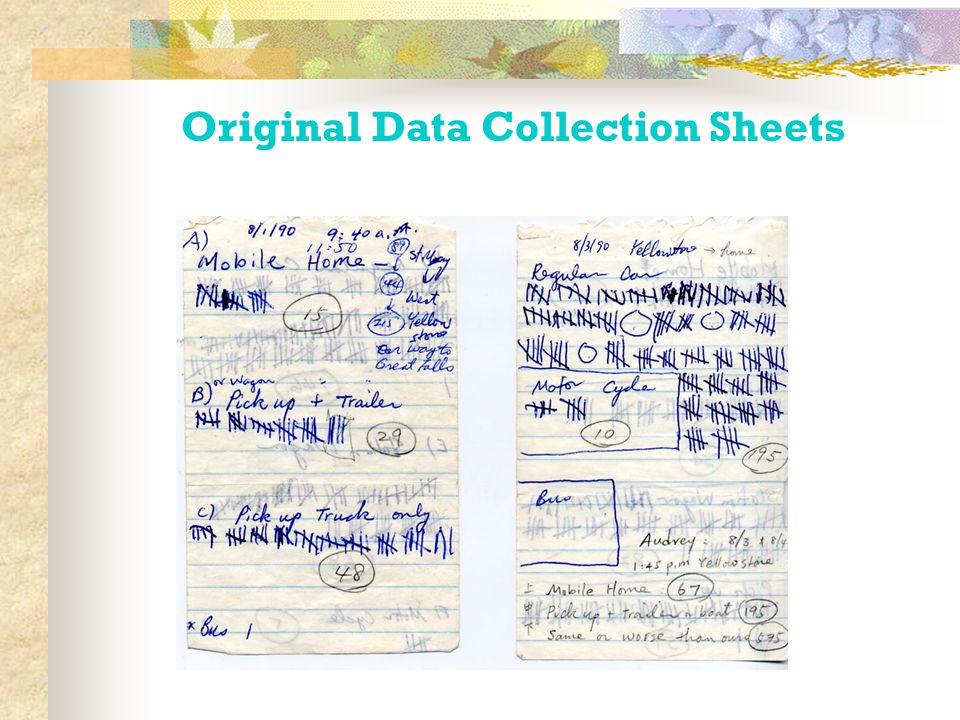 Original Data Collection Sheets
8/1/90 9:40 a.m.
11:50
A) Mobile Home
89
44
West
Yellow
stone
215
Our way to
Great Falls
15
or Wagon
B) Pick up + Trailer
29
C) Pick up Truck only
48
* Bus 1
8/3/90 Yellowstone → home
Regular Car
Motor Cycle
10
195
Bus
Audrey: 8/3 + 8/4
1:45 p.m Yellowstone
Mobile Home 67
Pick up + trailer boat 195
Same or worse than ours 595